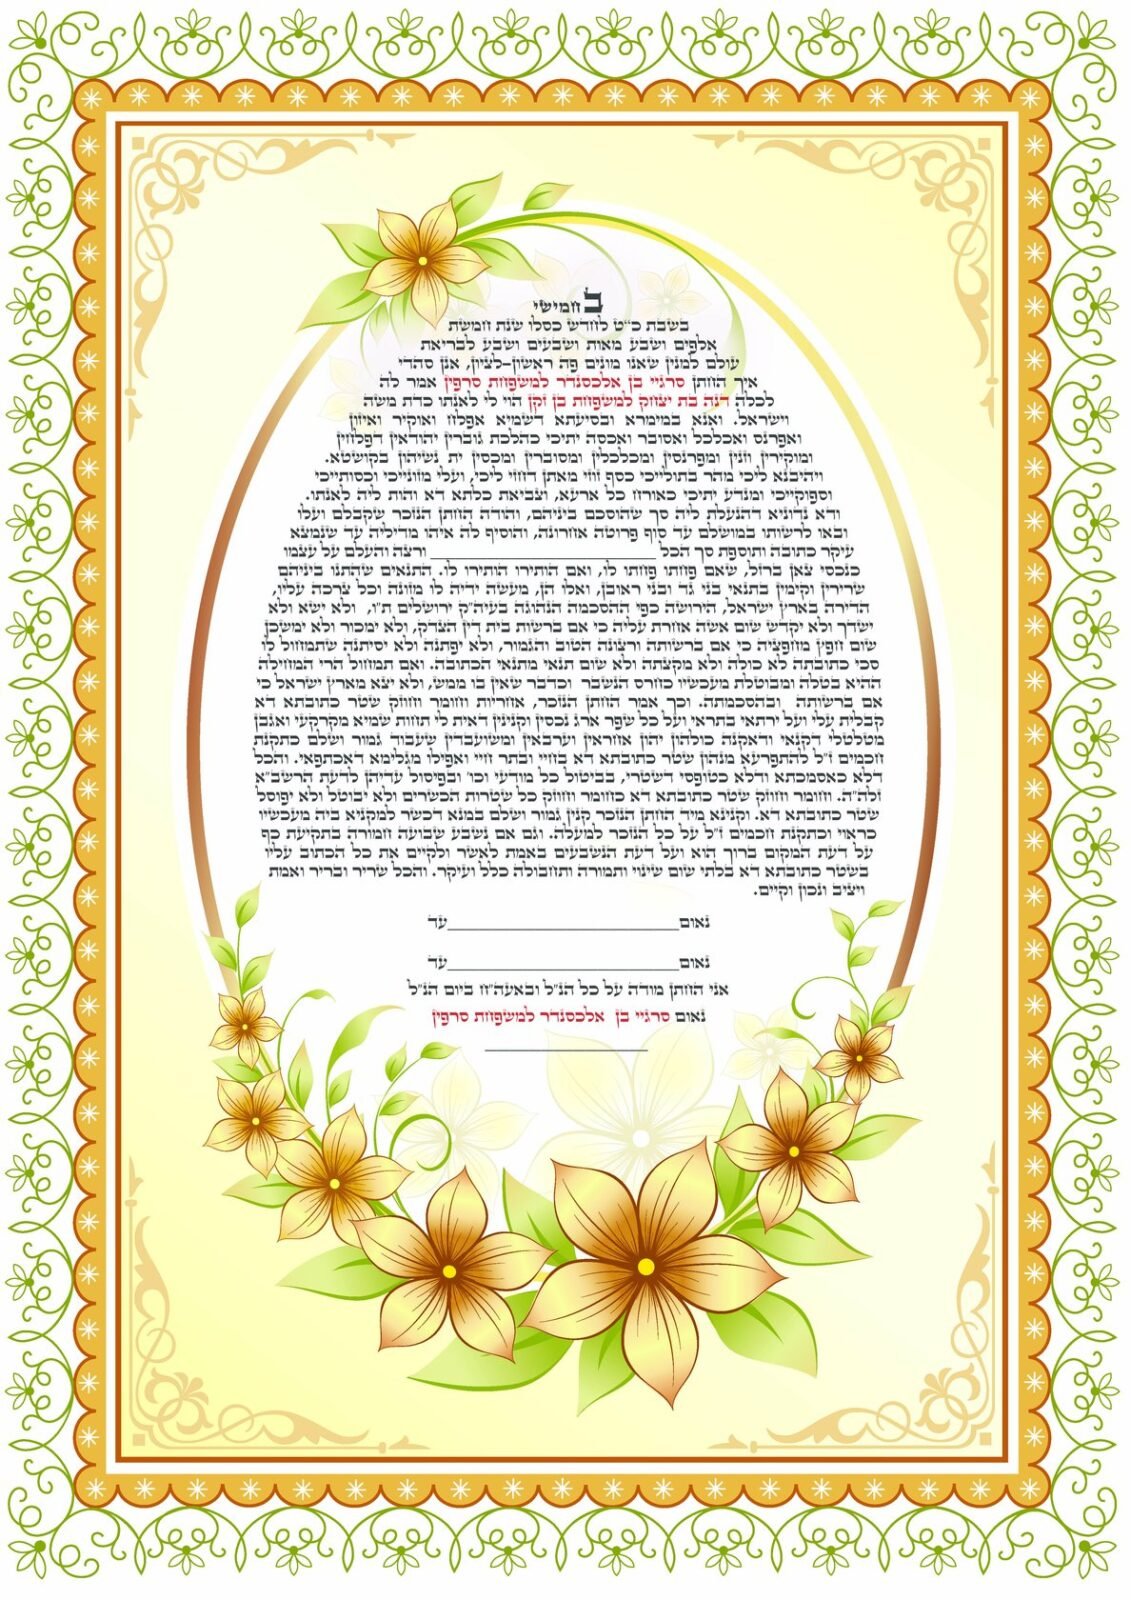 ב חמישי
בשבת כ״ט לחדש כסלו שנת חמשת
אלפים ושבע מאות ושבעים ושבע לבריאת
עולם למנין שאנו מונים פה ראשון-לציון, אנן סהדי
איך החתן סרגיי בן אלכסנדר למשפחת סרפין אמר לה
לכלה דנה בת יצחק למשפחת בן זקן הוי לי לאנתו כדת משה
וישראל. ואנא במימרא ובסיעתא דשמיא אפלח ואוקיר ואיזון
ואפרנס ואכלכל ואסובר ואכסה יתיכי כהלכת גוברין יהודאין דפלחין
ומוקירין וזנין ומפרנסין ומכלכלין ומסוברין ומכסין ית נשיהון בקושטא.
ויהיבנא ליכי מהר בתולייכי כסף זוזי מאתן דחזי ליכי, ועלי מזונייכי וכסותייכי
וספוקייכי ומנדע יתיכי כאורח כל ארעא, וצביאת כלתא דא והות ליה לאנתו.
ודא נדוניא דהנעלת ליה סך שהוסכם ביניהם, והודה החתן הנזכר שקבלם ועלו
ובאו לרשותו במושלם עד סוף פרוטה אחרונה, והוסיף לה איהו מדיליה עד שנמצא
עיקר כתובה ותוספת סך הכל ____________________ ורצה והעלם על עצמו
כנכסי צאן ברזל, שאם פחתו פחתו לו, ואם הותירו הותירו לו. התנאים שהתנו ביניהם
שרירין וקימין בתנאי בני גד ובני ראובן, ואלו הן, מעשה ידיה לו מזונה וכל צרכה עליו,
הדירה בארץ ישראל, הירושה כפי ההסכמה הנהוגה בעיה״ק ירושלים ת״ו, ולא ישא ולא
ישדך ולא יקדש שום אשה אחרת עליה כי אם ברשות בית דין הצדק, ולא ימכור ולא ימשכן
שום חפץ מחפציה כי אם ברשותה ורצונה הטוב והגמור, ולא יפתנה ולא יסיתנה שתמחול לו
סכי כתובתה לא כולה ולא מקצתה ולא שום תנאי מתנאי הכתובה. ואם תמחול הרי המחילה
ההיא בטלה ומבוטלת מעכשיו כחרס הנשבר וכדבר שאין בו ממש, ולא יצא מארץ ישראל כי
אם ברשותה ובהסכמתה. וכך אמר החתן הנזכר, אחריות וחומר וחוזק שטר כתובתא דא
קבלית עלי ועל ירתאי בתראי ועל כל שפר ארג נכסין וקנינין דאית לי תחות שמיא מקרקעי ואגבן
מטלטלי דקנאי ודאקנה כולהון יהון אחראין וערבאין ומשועבדין שעבוד גמור ושלם כתקנת
חכמים ז״ל להתפרעא מנהון שטר כתובתא דא בחיי ובתר חיי ואפילו מגלימא דאכתפאי. והכל
דלא כאסמכתא ודלא כטופסי דשטרי, בביטול כל מודעי וכו׳ ובפיסול עדיהן לדעת הרשב״א
זלה״ה. וחומר וחוזק שטר כתובתא דא כחומר וחוזק כל שטרות הכשרים ולא יבוטל ולא יפוסל
שטר כתובתא דא. וקנינא מיד החתן הנזכר קנין גמור ושלם במנא דכשר למקניא ביה מעכשיו
כראוי וכתקנת חכמים ז״ל על כל הנזכר למעלה. וגם אם נשבע שבועה חמורה בתקיעת כף
על דעת המקום ברוך הוא ועל דעת הנשבעים באמת לאשר ולקיים את כל הכתוב עליו
בשטר כתובתא דא בלתי שום שינוי ותמורה ותחבולה כלל ועיקר. והכל שריר ובריר ואמת
ויציב ונכון וקיים.
נאום____________________עד
נאום____________________עד
אני החתן מודה על כל הנ״ל ובאעה״ח ביום הנ״ל
נאום סרגיי בן אלכסנדר למשפחת סרפין